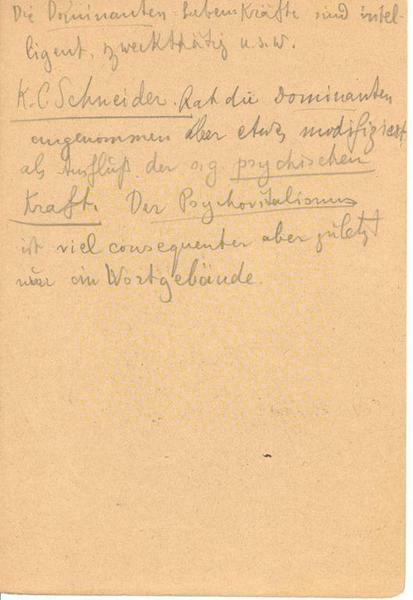 Die Dominanten-Lebenskräfte sind intel-
ligent, zweckthätig u.s.w.
K. C Schneider. Hat die Dominanten
angenommen aber etwas modifiziert
als Ausfluß der s.g. psychischen
Kraft. Der Psychovitalismus
ist viel consequenter aber zuletzt
nur ein Wortgebäude.